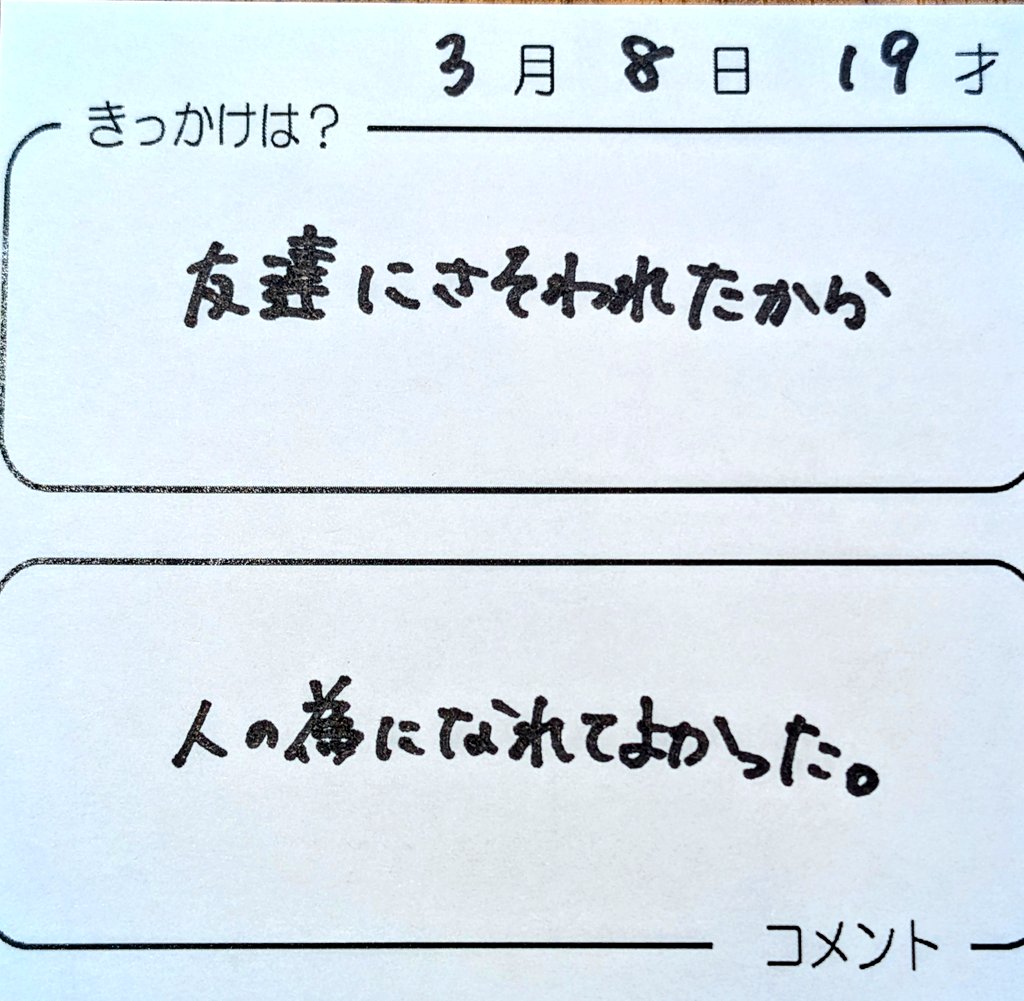 3月8日 19才
きっかけは？
友達にさそわれたから
人の為になれてよかった。
コメント